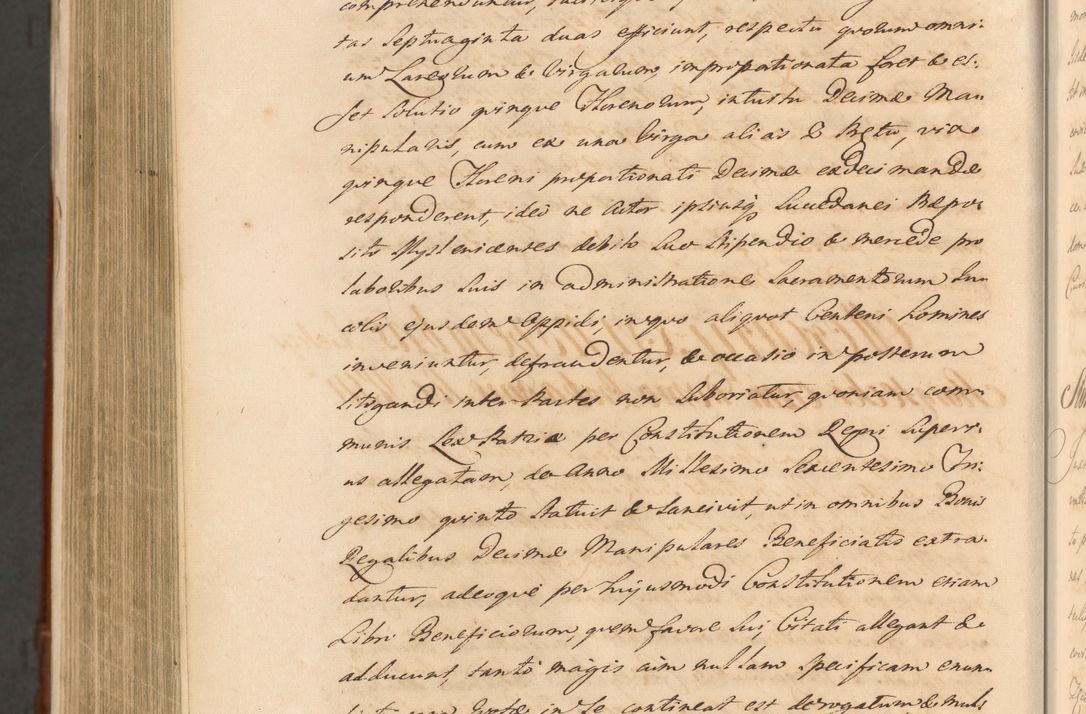 tas Septuaginta duas efficiunt, respectu quorum omni-
um Laneorum & Virgarum, improportionata foret & es-
set solutio quinque Florenorum, intuitu Decimæ Ma-
nipularis, cum ex una Virga alias
quinque Floreni proportionati Decimæ exdecimandæ
responderent, ideo ne Actor ipsiusq3 Succedanei Præpo-
siti Myslenicenses debito suo stipendio & mercede pro
laboribus suis in administratione Sacramentorum In-
colis ejusdem Oppidi, in quo aliquot Centeni homines
inveniuntur, defraudentur, & occasio in posterum
litigandi inter Partes non suboriatur, quoniam com-
munis Lex Patriæ per Constitutionem Regni superi-
us allegatam, de Anno Millesimo Sexcentesimo Tri-
gesimo quinto statuit & sancivit, ut in omnibus Bonis
Regalibus Decimæ Manipulares Beneficiatis extra-
dantur, adeoque per hujusmodi Constitutionem etiam
Libri Beneficiorum, quem favore sui, Citati allegant &
adducunt, tanto magis cum nullam specificam enun-
in se contineat est derogatum & mul